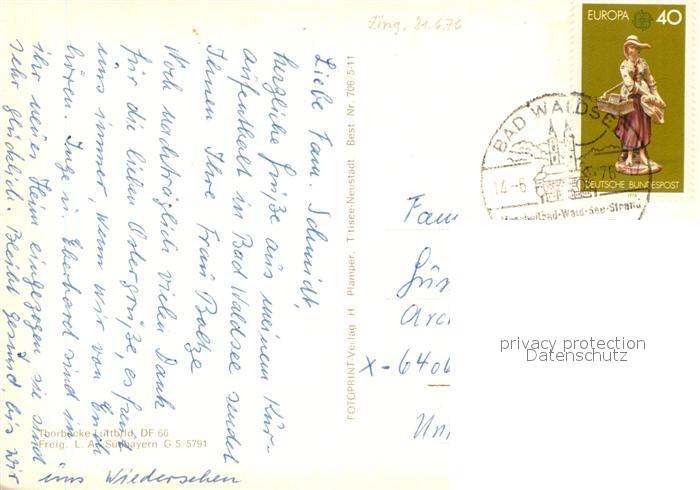 Eing. 21.6.76
EUROPA 40
DEUTSCHE BUNDESPOST
BAD WALDSEE
14-6 76
Moorheilbad-Wald-See-Strand
Liebe Fam. Schmidt,
herzliche Grüße aus meinem Kur-
aufenthalt in Bad Waldsee sendet
Ihnen Ihre Frau
Noch nachträglich vielen Dank
für die lieben Ostergrüße, es freut
uns immer, wenn wir von Euch
hören. Inge u. Eberhard sind in
ihr neues Heim eingezogen sie sind
sehr glücklich. Bleibt gesund, bis wir
uns Wiedersehen
Thorbecke-Luftbild, DF 66
Freig. L. A. Südbayern G 5/5791
FOTOPRINT-Verlag H. Plamper, Titisee-Neustadt Best. Nr. 706/5-11
Fam
Arc
X-6406
privacy protection
Datenschutz